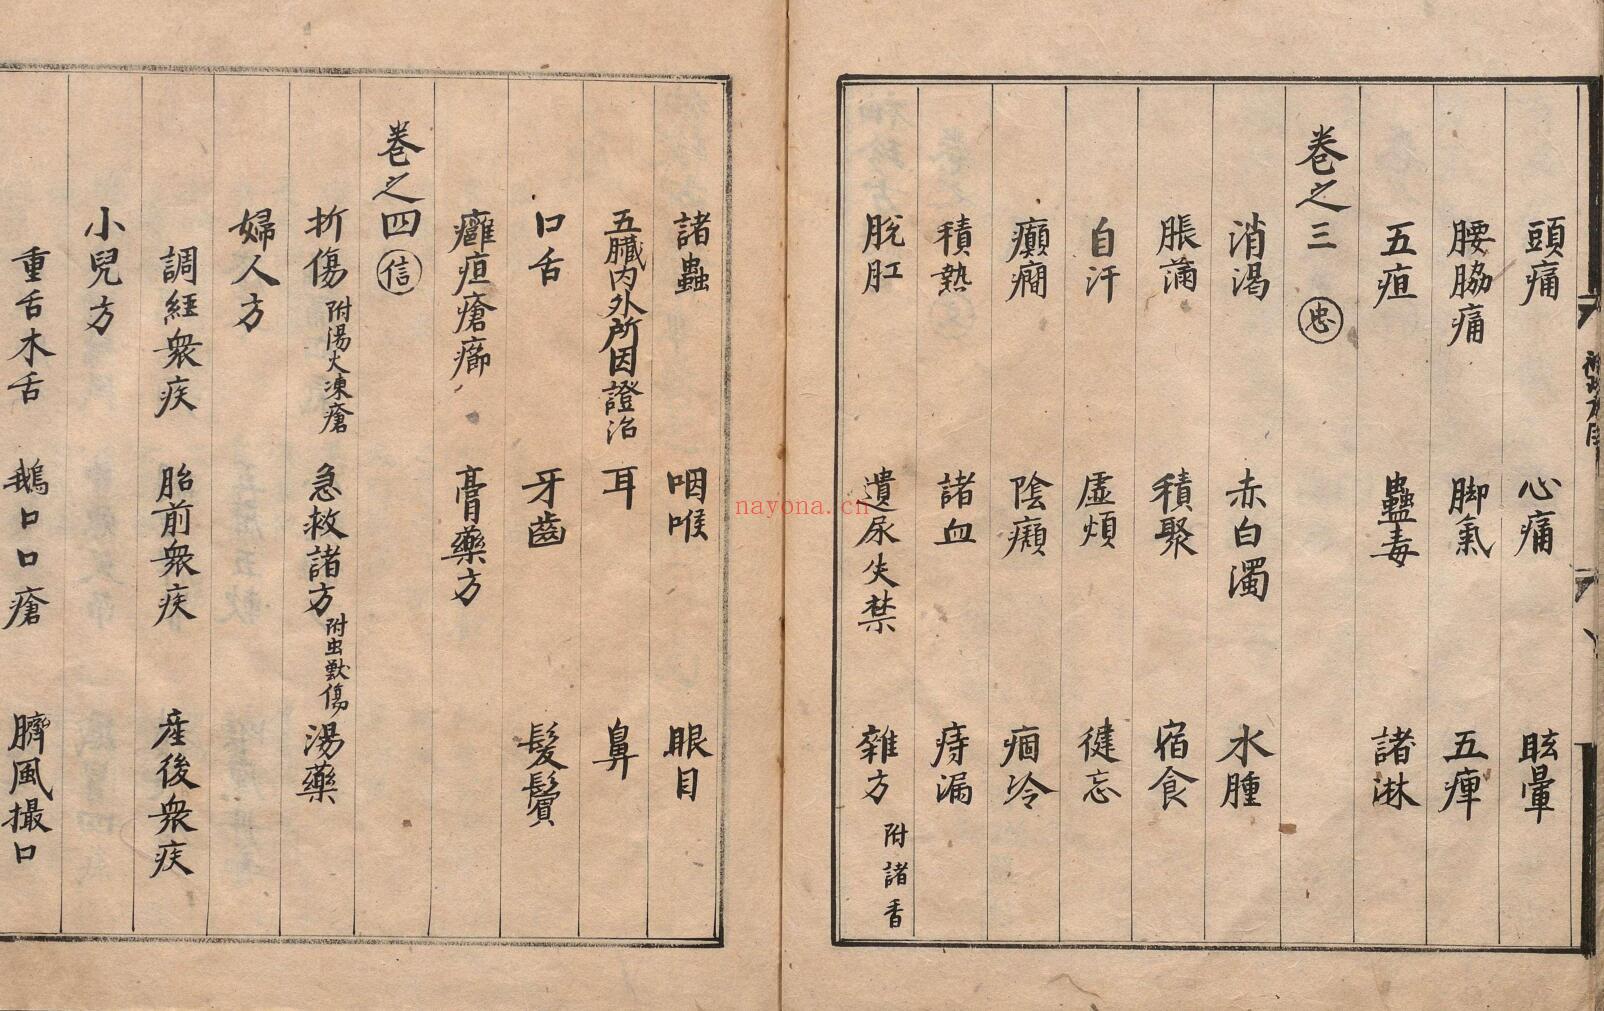 頭痛 心痛 眩暈
腰脇痛 脚氣 五痺
五疸 蠱毒 諸淋
卷之三 忠
消渴 赤白濁 水腫
脹滿 積聚 宿食
自汗 虛煩 健忘
癲癇 陰㿗 痼冷
積熱 諸血 痔漏
脫肛 遺尿失禁 雜方 附諸香
諸蟲 咽喉 眼目
五臟内外所因證治 耳 鼻
口舌 牙齒 髮鬢
癰疽瘡癤 膏藥方
卷之四 信
折傷 附湯火凍瘡 急救諸方 附虫獸傷 湯藥
婦人方
調經衆疾 胎前衆疾 産後衆疾
小兒方
重舌木舌 鵝口口瘡 臍風撮口
nayona.cn